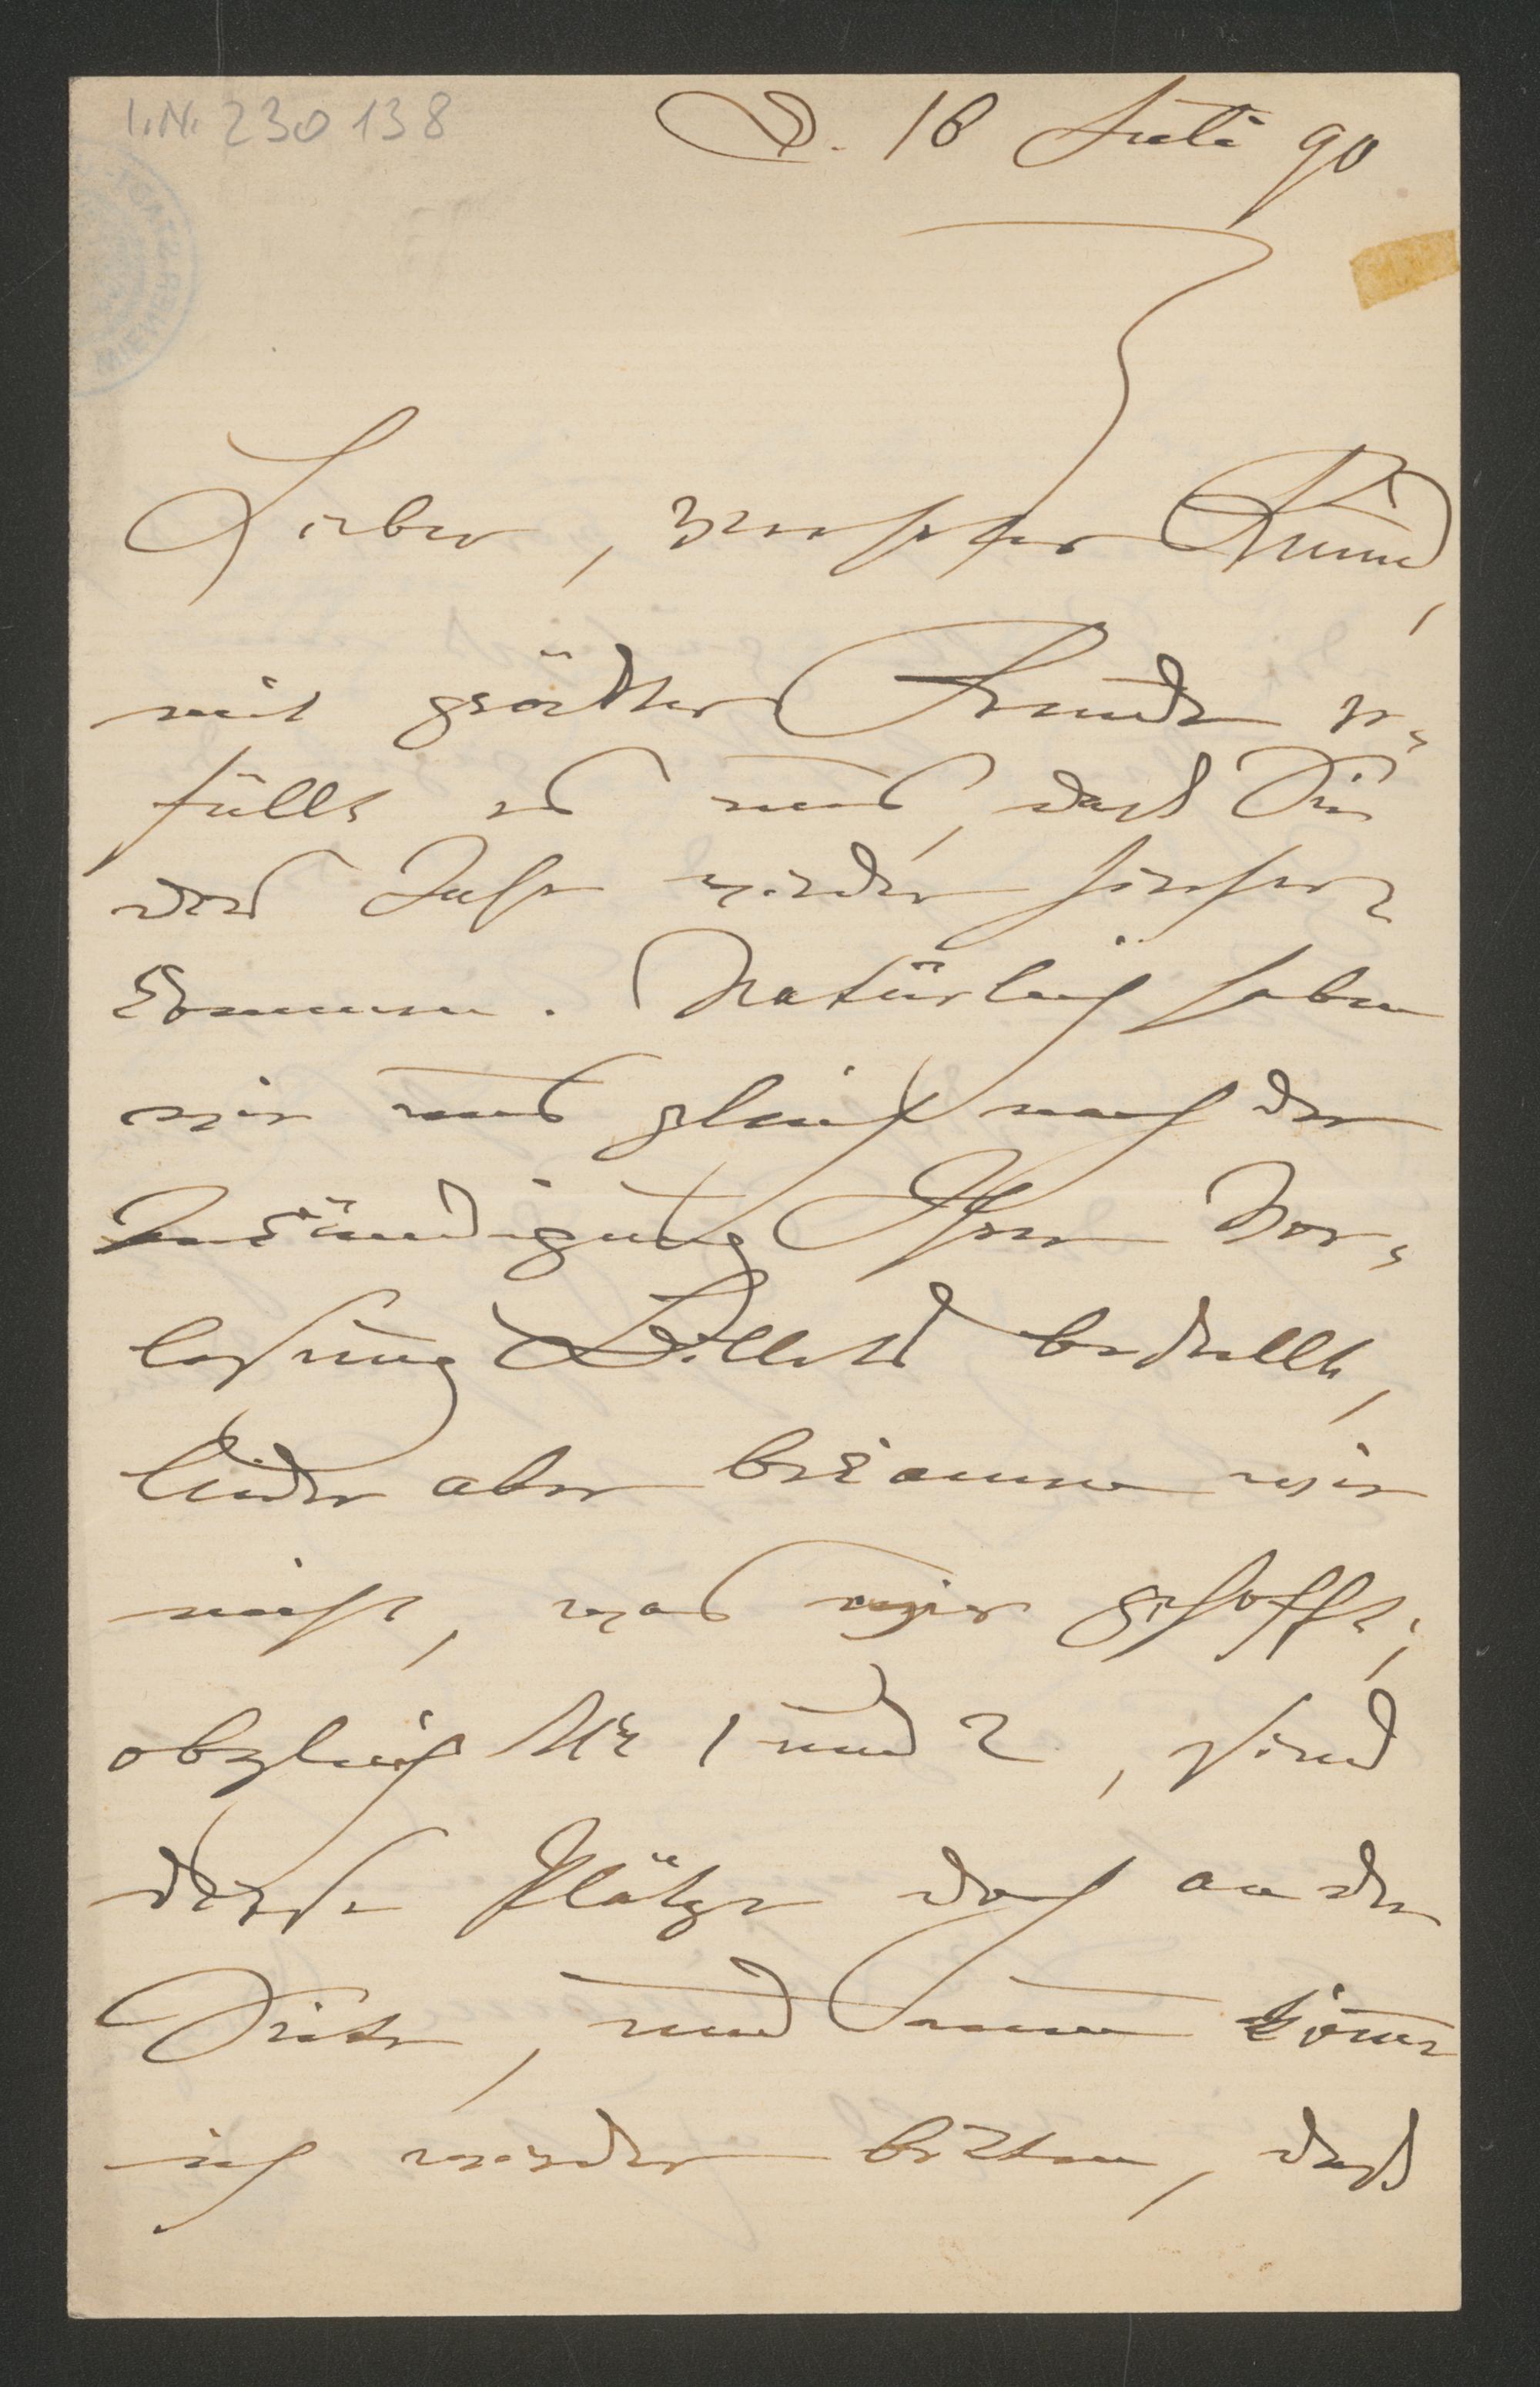 I.N. 230138
D. 18 Juli 90
Lieber, verehrter Freund,
mit größter Freude er-
füllt es uns, daß Sie
dies Jahr wieder hierher
kommen. Natürlich haben
wir uns gleich nach der
Ankündigung Ihrer Vor-
lesung Billets bestellt,
leider aber bekamen wir
nicht, was wir gehofft;
obgleich Nr 1 und 2, sind
diese Plätze doch an der
Seite, und könnte
ich wieder bitten, daß